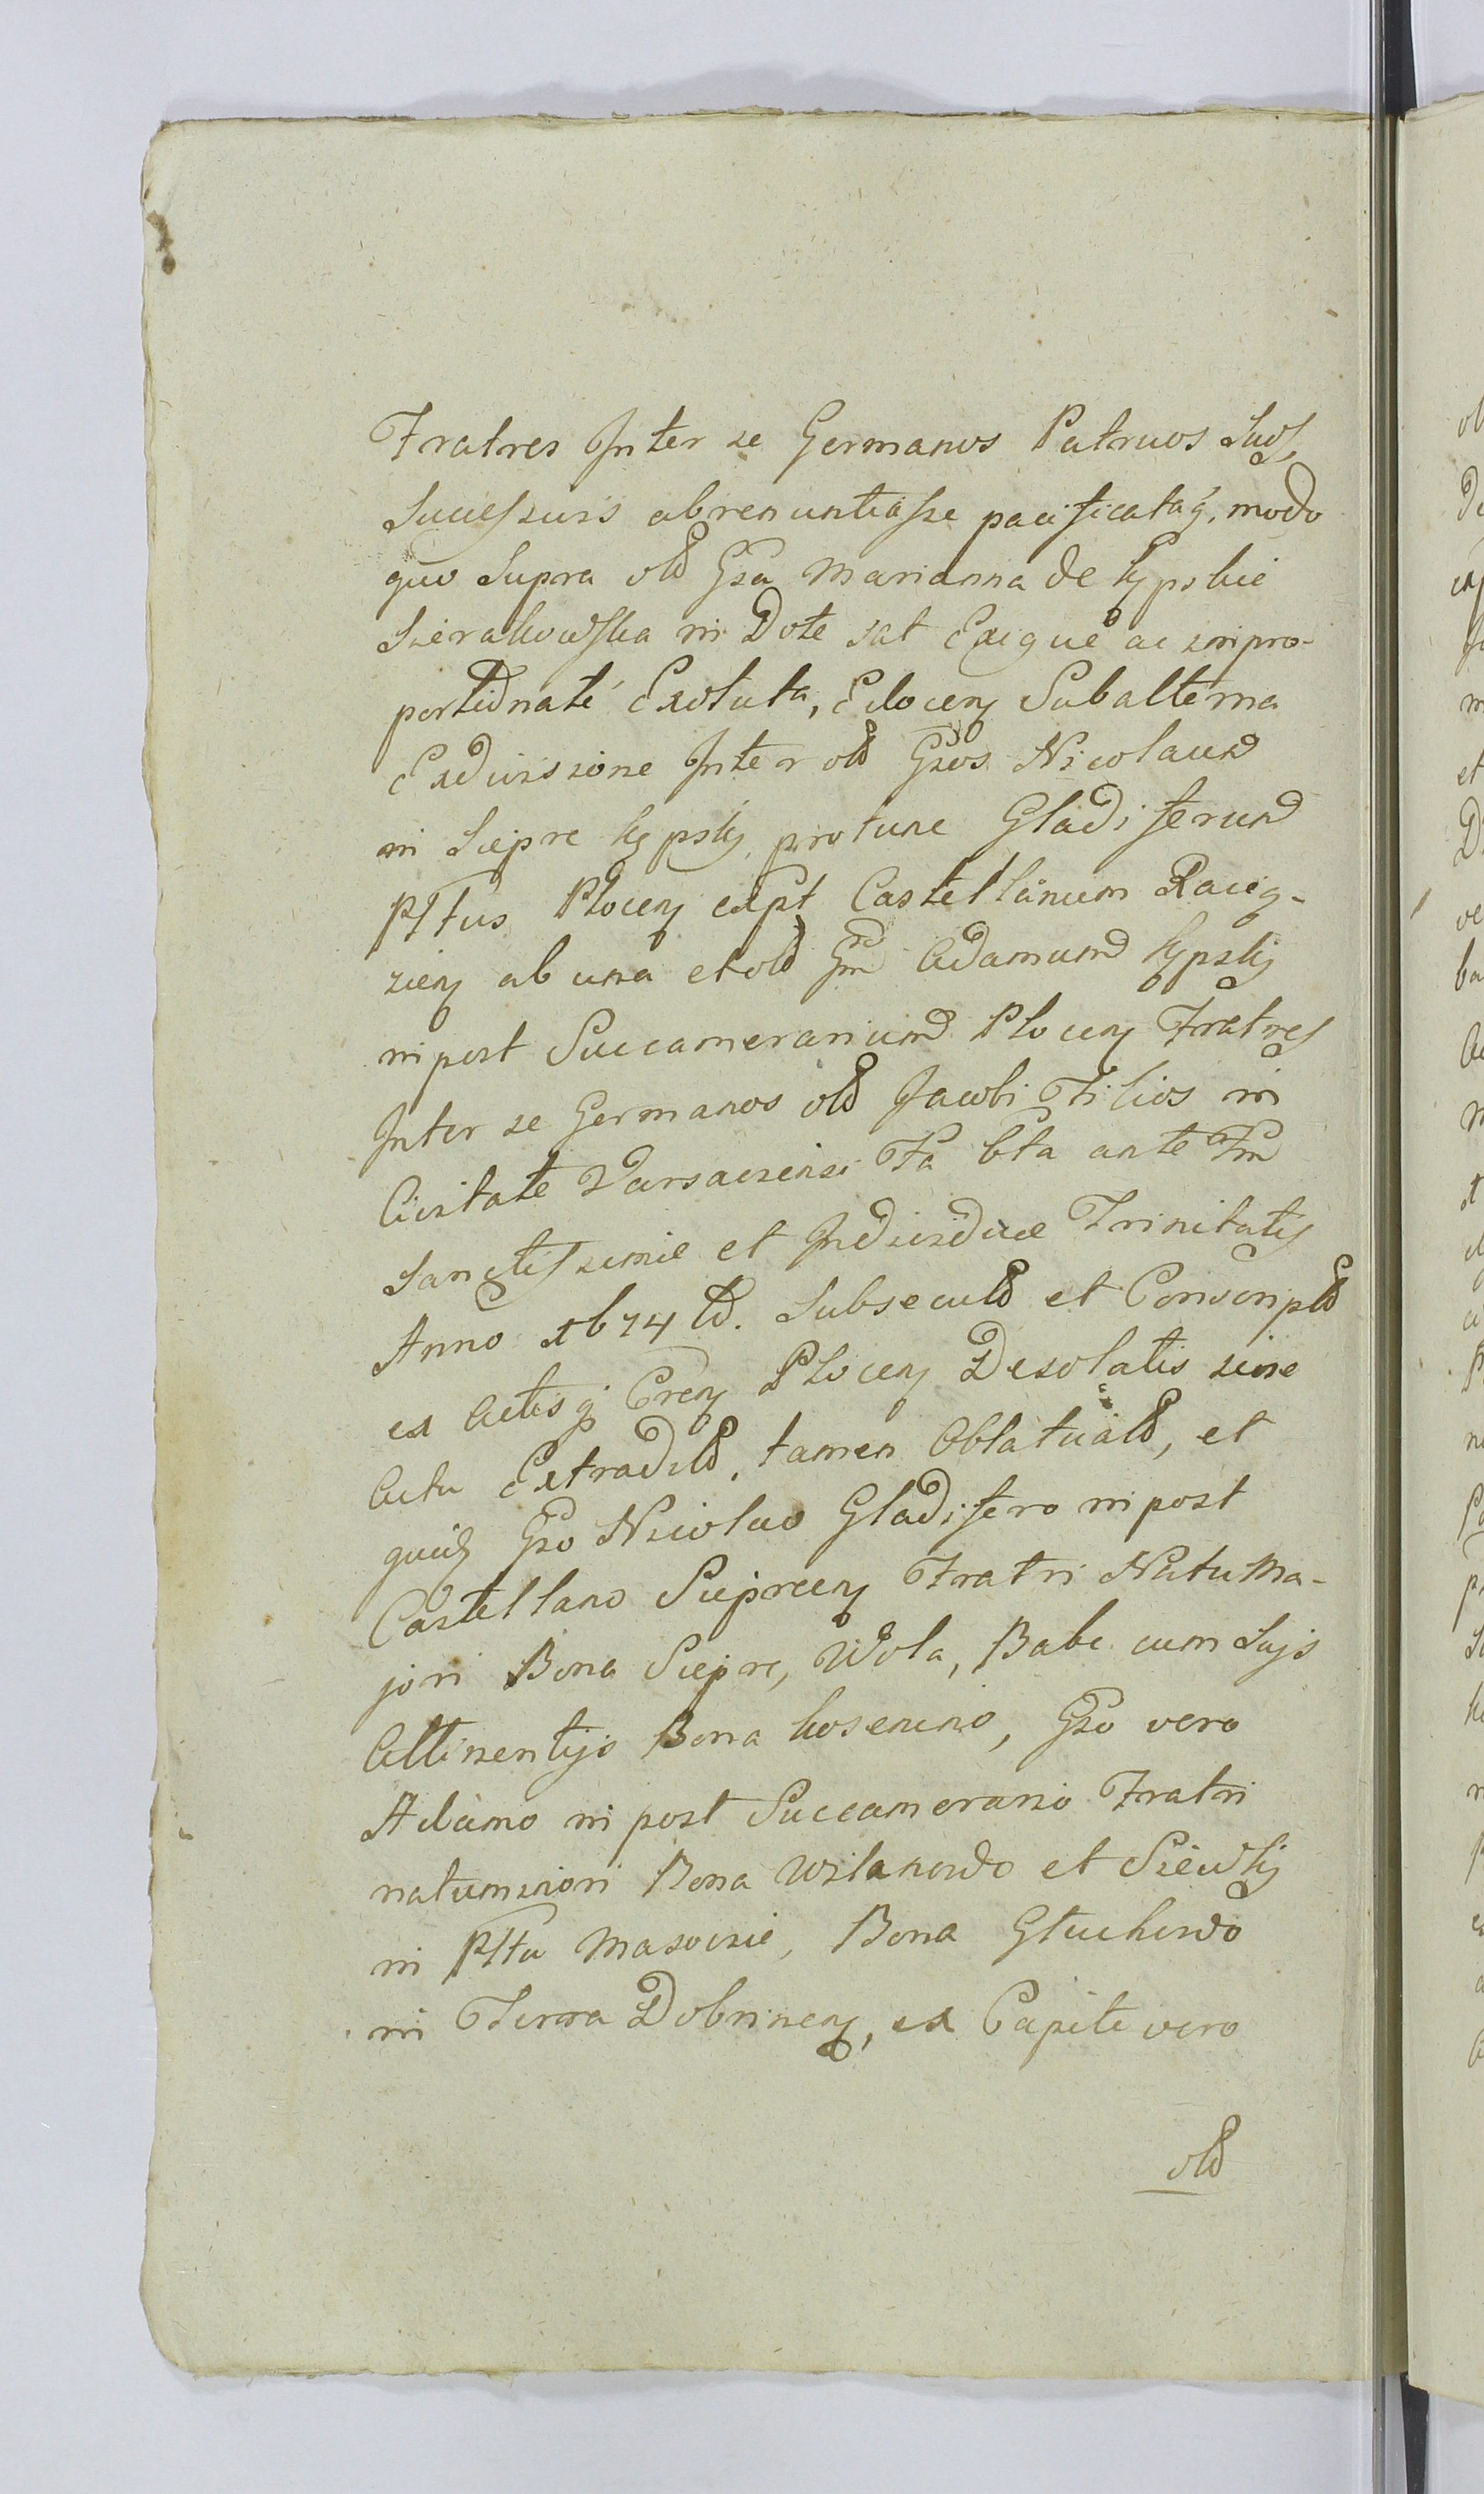 Fratres Inter se Germanos Patruos Suos
Successuris abrenuntiasse pacificataq, modo
quo Supra old Gsa Marianna de Kępskie
Sierakowska in Dote sat Exigue ac impro-
portionate Exoluta, Eiloceny Subalterna
Exdivisione Inter old Gsos Nicolaum
in Siepre Kępskj protunc Gladiferum
Pltus Ploceny expt Castellanum Raciąz-
zieny ab una et old Gm Adamum Kępskj
in post Succamerarium Ploceny Fratres
Inter se Germanos old Jacobi Filios in
Civitate Varsaviensi Fa 6ta ante Fm
Sanctissimae et Individuae Trinitatis
Anno 1674 to. Subsecuto et Conscripto
ex Actisq Creny Ploceny Desolatis sine
Actu Extradito, tamen Oblatuato, et
quidz Gso Nicolao Gladifero in post
Castellano Siepreceny Fratri Natu Ma-
jori Bona Siepre, Wola, Babe cum Sujs
Attinentijs Bona Kosemino, Gso vero
Adamo in post Succamerario Fratri
natuminori Bona Wilanowo et Siewskj
in Pltu Masoviae, Bona Głuchowo
in Terra Dobrineny, ex Capite vero
old